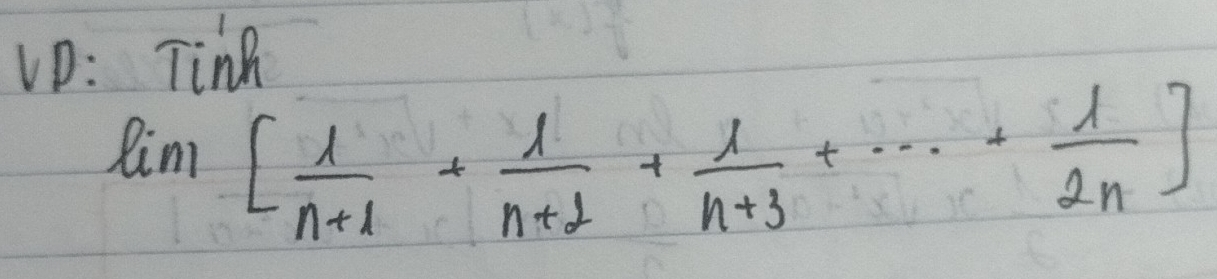 VD: Tính
lim [ 1/(n+1) + 1/(n+2) + 1/(n+3) + ... + 1/(2n) ]